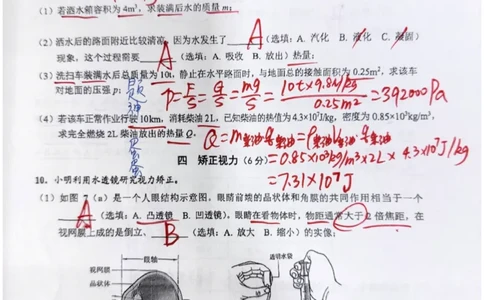 (1) 若洒水箱容积为4m³，求装满后水的质量m；
(2) 洒水后的路面附近比较清凉，因为水发生了 A （选填：A. 汽化 B. 液化 C. 凝固）
现象，这个过程需要 A （选填：A. 吸收 B. 放出）热量；
(3) 洗扫车装满水后总质量为10t，静止在水平路面时，与地面总的接触面积为0.25m²，求该车
对地面的压强p；
P=F/S=G/S=mg/S=10t×9.8N/kg/0.25m²=392000Pa
(4) 若该车正常作业行驶10km，消耗柴油2L，已知柴油的热值为4.3×10⁷J/kg，密度为0.85×10³kg/m³，
求完全燃烧2L柴油放出的热量Q。
Q=m柴油q柴油=ρ柴油V柴油·q柴油
=0.85×10³kg/m³×2L×4.3×10⁷J/kg
=7.31×10⁷J
四 矫正视力（6分）
10. 小明利用水透镜研究视力矫正。
(1) 如图7（a）是一个人眼结构示意图。眼睛前端的晶状体和角膜的共同作用相当于一个
A （选填：A. 凸透镜 B. 凹透镜），眼睛在看物体时，物距通常大于2倍焦距，在
视网膜上成的是倒立、 B （选填：A. 放大 B. 缩小）的实像；
眼轴
视网膜
晶状体
透明水袋